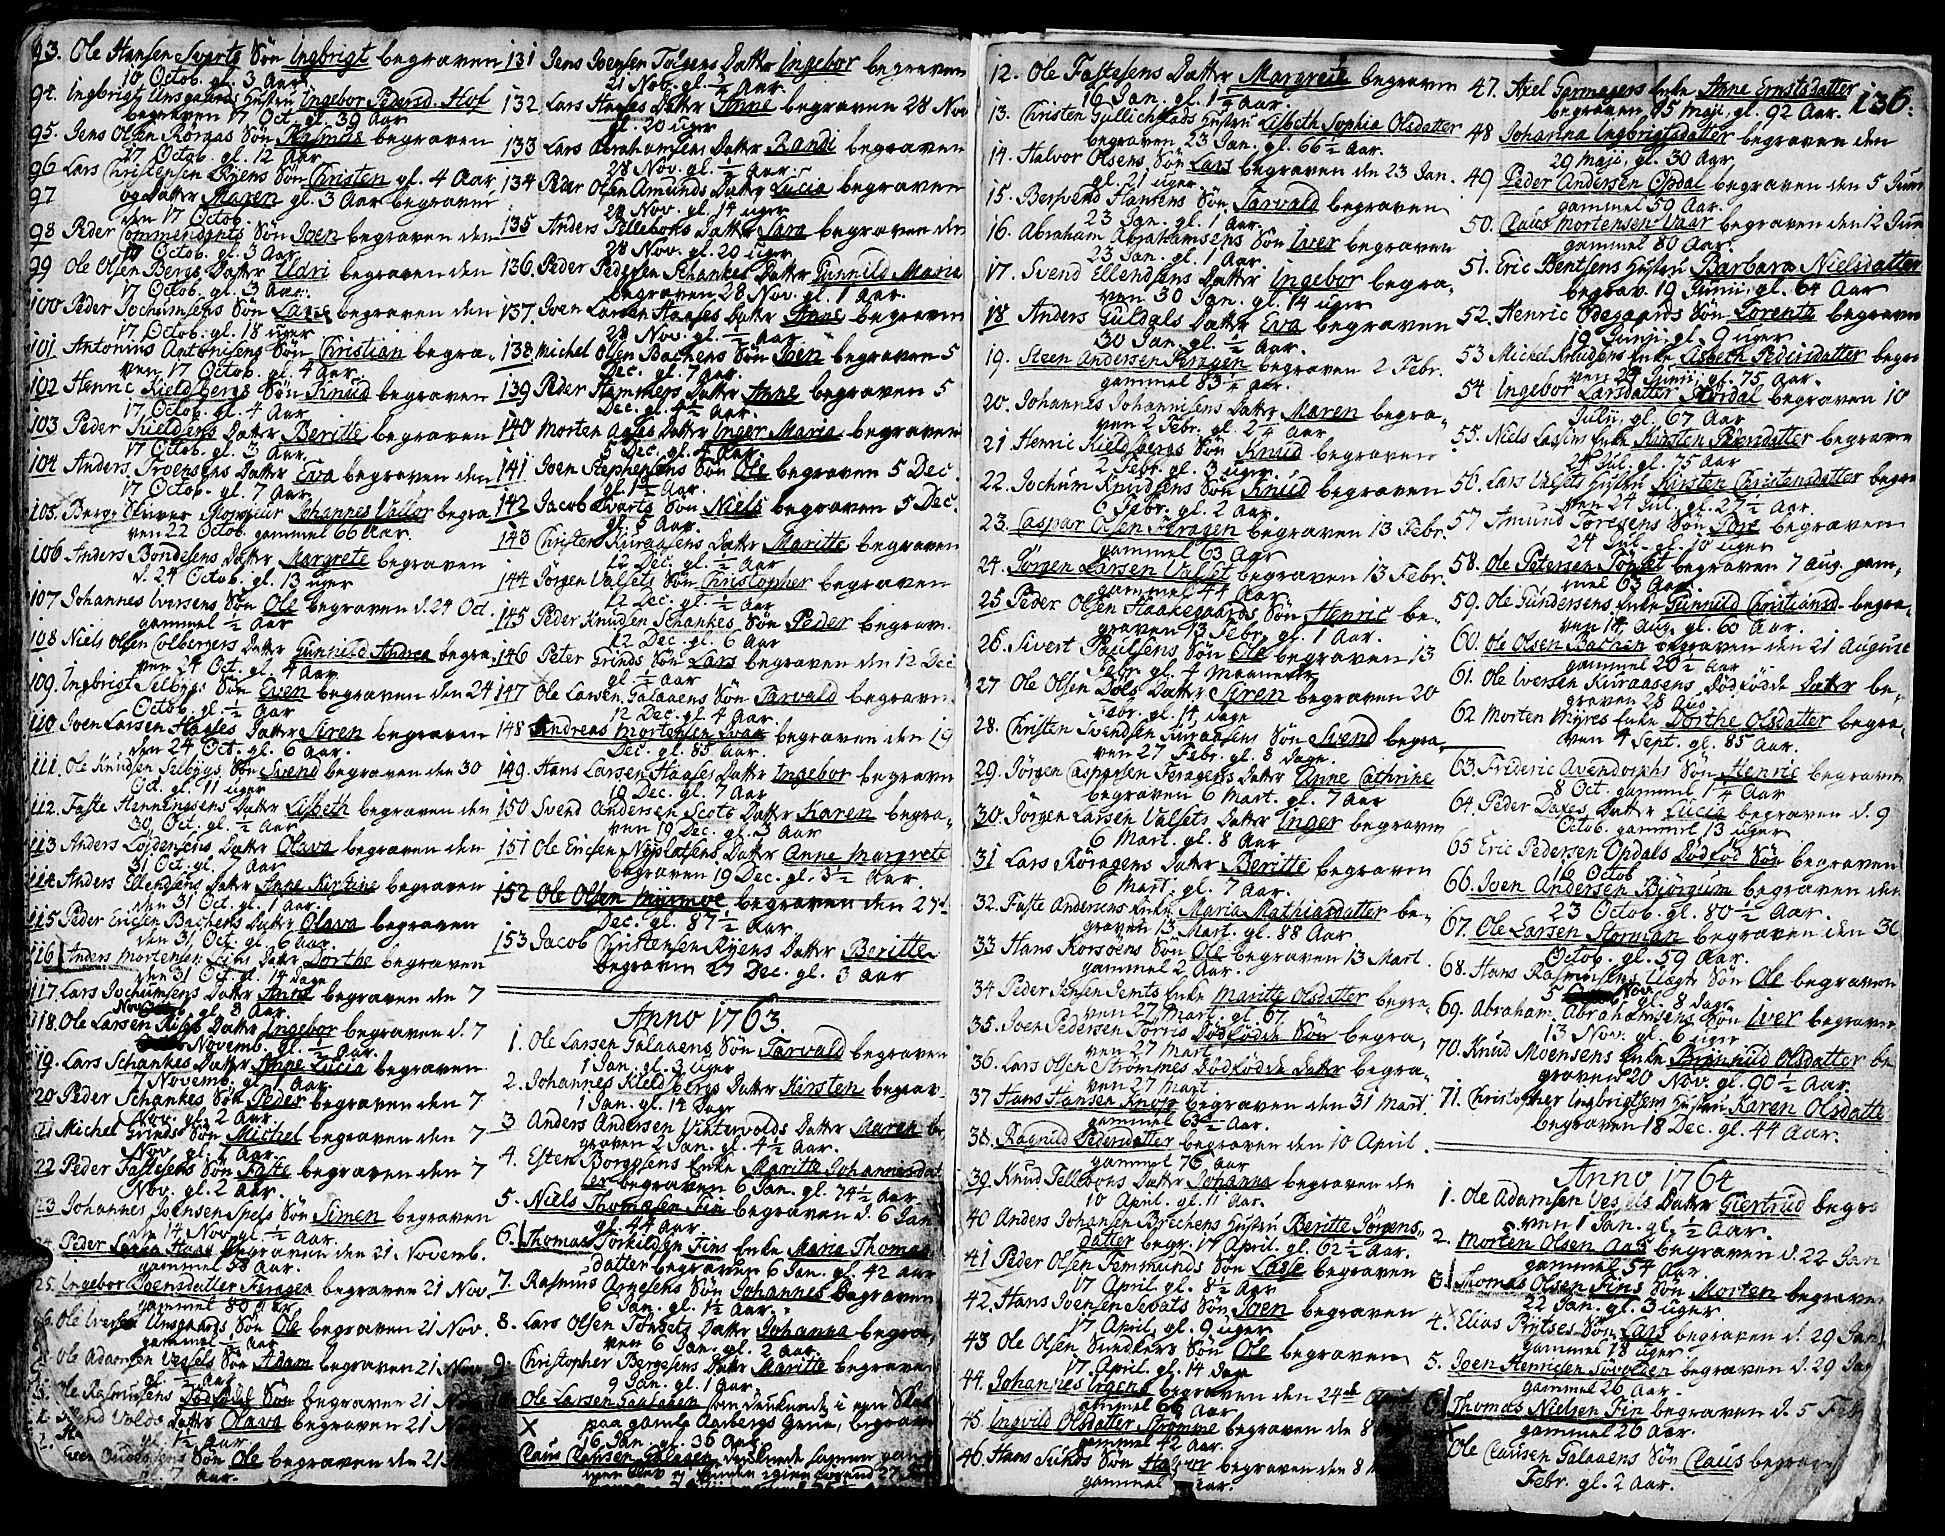 93. Ole Hansen Svarts Søn Ingbrigt begraven
10 Octob. gl. 3 Aar.
94. Ingbrigt Unsgaards Hustru Ingebor Pedersd. Hof
begraven 17 Oct. gl. 39 Aar
95. Jens Olsen Röraas Søn Rasmus begraven
17 Octob. gl. 12 Aar
96 Lars Christensen Ryens Søn Christen gl. 4 Aar
97 og Datter Maren gl. 3 Aar begraven
den 17 Octob.
98 Peder Commendants Søn Joen begraven den
Octob. gl. 3 Aar
99 Ole Olsen Bergs Datter Eldri begraven den
17 Octob. gl. 3 Aar.
100 Peder Jochumsens Søn begraven den
17 Octob. gl. 18 uger
101 Antonius Antonisens Søn Christian begra-
ven 17 Octob. gl. 4 Aar.
102 Henric Kieldbergs Søn Knud begraven
17 Octob. gl. 4 Aar
103 Peder Datter Beritte begraven
17 Octob. gl. 3 Aar.
104 Anders Datter Eva begraven den
17 Octob. gl. 7 Aar
105. Berge Skriver Monsieur Johannes begra-
ven 22 Octob. gammel 66 Aar.
106 Anders Bondesens Datter Margrete begraven
d. 24 Octob. gl. 13 uger
107 Johannes Iversens Søn Ole begraven d. 24 Oct.
gammel ½ Aar
108 Niels Olsen Colbergers Datter Gunnild Andrea begra-
ven 24 Oct. gl. 4 Aar
109. Ingbrigt Selbygs Søn Even begraven den 24
Octob. gl. ½ Aar
110 Joen Larsen Haases Datter Siren begraven
den 24 Oct. gl. 6 Aar.
111. Ole Knudsen Selbygs Søn Svend begraven den 30
Oct. gl. 11 uger
112. Faste Henningsens Datter Lisbeth begraven den
30 Oct. gl. ½ Aar
113 Anders Datter Olava begraven den
31 Oct. gl. Aar
114 Anders Ellendsens Datter Anne Kirstine begraven
den 31 Oct. gl. 1 Aar.
115 Peder Ericsen Bachens Datter Olava begraven
den 31 Oct. gl. 6 Aar.
116 Anders Mortensen Fins Datter Dorthe begraven
den 31 Oct. gl. 14 Dage
117 Lars Jochumsens Datter Anne begraven den 7
Nov. gl. 8 Aar.
118. Ole Larsen Datter Ingebor begraven d. 7
Novemb. gl. ½ Aar.
119. Lars Schankes Datter Anne Lucia begraven
7 Novemb. gl. 1 Aar.
120 Peder Schankes Søn Peder begraven den 7
Nov. gl. 2 Aar.
121 Michel Grinds Søn Michel begraven den 7
Nov. gl. Aar
122 Peder Fastesens Søn Faste begraven den 7
Nov. gl. 2 Aar.
123 Johannes Joensen Spels Søn Simen begraven
den 14 Nov. gl. ½ Aar.
Peder Larsen Haas begraven den 21 Novemb.
gammel 58 Aar.
25. Ingebor Joensdatter Feragen begraven 21 Nov.
gammel 80 Aar
26. Ole Iversen Unsgaards Søn Ole begraven 21 Nov.
gammel ½ Aar
Ole Adamsen Vegsels Søn Adam begraven 21 Nov
gl. Aar
Ole Rasmusens Dødfød Søn begraven 21 Nov
Svend Volds Datter Olava begraven 21 Nov
gl. 1½ Aar
Søn Ole begraven den 21 Nov
gl. 7 Aar.
131 Jens Joensen Tolgens Datter Ingebor begraven
21 Nov. gl. ½ Aar.
132 Lars Haases Datter Anne begraven 28 Nov
gl. 20 uger
133 Lars Abrahamsens Datter Randi begraven
28 Nov. gl. ½ Aar.
134 Peder Olsen Amunds Datter Lucia begraven
28 Nov. gl. 14 uger
135 Anders Pellebotts Datter Sara begraven den
28 Nov. gl. 20 uger
136. Peder Pedersen Schankes Datter Gunnild Maria
begraven 28 Nov. gl. 1 Aar.
137. Joen Larsen Haases Datter Anne begraven
28 Nov. gl. ½ Aar
138. Michel Olsen Bachens Søn Joen begraven 5
Dec. gl. 7 Aar.
139 Peder Hammers Datter Anne begraven 5
Dec. gl. 4½ Aar.
140 Morten Aases Datter Inger Maria begraven
5 Dec. gl. 4 Aar.
141 Joen Stephensens Søn Ole begraven 5 Dec.
gl. 1½ Aar.
142 Jacob Svarts Søn Niels begraven 5 Dec.
gl. 5 Aar.
143 Christen Kuraasens Datter Maritte begraven
12 Dec. gl. ½ Aar
144 Jørgen Valsets Søn Christopher begraven
12 Dec. gl. ½ Aar
145 Peder Knudsen Schankes Søn Peder begrav.
12 Dec. gl. 6 Aar
146 Peter Grinds Søn Lars begraven den 12 Dec
gl. ½ Aar
147 Ole Larsen Galaaens Søn Tarvald begraven
12 Dec. gl. 4 Aar.
148 Andreas Mortensen begraven den 19
Dec. gl. 85 Aar.
149. Hans Larsen Haases Datter Ingebor begraven
19 Dec. gl. 7 Aar
150 Svend Andersen Scots Datter Karen begra-
ven 19 Dec. gl. 3 Aar
151 Ole Ericsen Nyplatsens Datter Anne Margrete
begraven 19 Dec. gl. 3½ Aar.
152 Ole Olsen Myrmoe begraven den 27de
Dec. gl. 87½ Aar.
153 Jacob Christensen Ryens Datter Beritte
begraven 27 Dec. gl. 3 Aar
Anno 1763.
1. Ole Larsen Galaaens Søn Tarvald begraven
1 Jan. gl. 3 uger
2. Johannes Kieldbergs Datter Kirsten begrav.
1 Jan. gl. 14 Dage
3 Anders Andersen Vintervolds Datter Maren be-
graven 2 Jan. gl. 4½ Aar.
4. Esten Borgosens Enke Maritte Johannisdat
ter begraven 6 Jan. gl. 74½ Aar
5. Niels Thomasen Fin begraven d. 6 Jan
gl. 44 Aar.
6. Thomas Torkildsen Fins Enke Maria Thomas
datter begraven 6 Jan. gl. 42 Aar
7. Rasmus Arvesens Søn Johannes begraven
6 Jan. gl. 1½ Aar.
8. Lars Olsen Datter Johanna begra-
ven 6 Jan. gl. 2 Aar.
9. Christopher Bergesens Datter Maritte begraven
9 Jan. gl. 1 Aar.
10. Ole Larsen Galaaen som druknede i een
X paa gamle Aasbergs Grue, begraven
16 Jan. gl. 36 Aar.
Claus Clausen Galaaen, druknede sammen
12. Ole Fastesens Datter Margrete begraven
16 Jan. gl. 1½ Aar.
13. Christen Gullichstads Hustru Lisbeth Sophia Olsdatter
begraven 23 Jan. gl. 66½ Aar.
14. Halvor Olsens Søn Lars begraven den 23 Jan.
gl. 21 uger
15. Bersvend Hansens Søn Tarvald begraven
23 Jan. gl. 1 Aar.
16. Abraham Abrahamsens Søn Iver begraven
23 Jan. gl. 1 Aar.
17. Svend Ellendsens Datter Ingebor begra-
ven 30 Jan. gl. 14 uger
18 Anders Guldals Datter Eva begraven
30 Jan. gl. ½ Aar.
19. Steen Andersen Feragen begraven 2 Febr.
gammel 83½ Aar.
20. Johannes Johannisens Datter Maren begra-
ven 2 Febr. gl. 24 Aar
21 Henric Kieldbergs Søn Knud begraven
2 Febr. gl. 3 uger
22. Jochum Knudsens Søn Knud begraven
6 Febr. gl. 2 Aar.
23. Caspar Olsen Feragen begraven 13 Febr.
gammel 63 Aar
24. Jørgen Larsen Valset begraven 13 Febr.
gammel 44 Aar.
25 Peder Olsen Haakegaards Søn Henric be-
graven 13 Febr. gl. 1 Aar.
26. Sivert Paulsens Søn Ole begraven 13
Febr. gl. 4 Maaneder
27 Ole Olsen Dols Datter Siren begraven 20
Febr. gl. 14 dage
28. Christen Svendsen Kuraasens Søn Svend begra-
ven 27 Febr. gl. 8 Dage.
29. Jörgen Caspersen Feragens Datter Anne Cathrine
begraven 6 Mart. gl. 7 Aar
30. Jörgen Larsen Valsets Datter Inger begraven
6 Mart. gl. 8 Aar
31 Lars Röragens Datter Beritte begraven
6 Mart. gl. 7 Aar.
32. Faste Andersens Enke Maria Mathiasdatter be-
graven 13 Mart. gl. 88 Aar
33 Hans Korsoens Søn Ole begraven 13 Mart.
gammel 2 Aar.
34 Peder Jensen Jemts Enke Maritte Olsdatter begra-
ven 27 Mart. gl. 67
35. Joen Pedersen Torris Dødfødde Søn begra-
ven 27 Mart
36. Lars Olsen Strömmes Dødfødde Datter begra-
ven 27 Mart
37 Hans Hansen Knop begraven den 31 Mart.
gammel 65½ Aar.
38. Ragnild Pedersdatter begraven den 10 April.
gammel 76 Aar
39. Knud Tellebons Datter Johanna begraven den
10 April. gl. 11 Aar.
40 Anders Johansen Brechens Hustru Beritte Jørgens-
datter begr. 17 April. gl. 62½ Aar.
41 Peder Olsen Femmunds Søn Lasse begraven
17 April. gl. 8½ Aar
42. Hans Joensen Sevats Søn Joen begraven
17 April. gl. 9 uger
43 Ole Olsen Sundkers Søn Ole begraven
17 April. gl. 14 Dage
44. Johannes begraven den 24de
gammel 66 Aar
45. Ingvild Olsdatter Strömme begraven den 8
gammel 42 Aar.
46. Hans Sunds Søn begraven den 8
gammel Aar.
136.
47. Axel Garmagers Enke Anne Ernstsdatter
begraven 15 Maji. gl. 92 Aar.
48 Johanna Ingbrigtsdatter begraven den
29 Maji. gl. 30 Aar.
49 Peder Andersen Opdal begraven den 5 Juni
gammel 59 Aar.
50. Claus Mortensen begraven den 12 Juni
gammel 80 Aar.
51. Eric Bentsens Hustru Barbara Nielsdatter
begrav. 19 Junii. gl. 64 Aar
52. Henric Ödegaards Søn Lorents begraven
19 Junii. gl. 9 uger
53 Michel Enke Lisbeth Pedersdatter begra
ven 24 Junii. gl. 75 Aar.
54 Ingebor Larsdatter Stördal begraven 10
Julii. gl. 67 Aar
55. Niels Lasses Enke Kirsten datter begraven
24 Jul. gl. 75 Aar.
56. Lars Valsets Hustru Kirsten Christensdatter begra
ven 24 Jul. gl. 27½ Aar.
57 Amund Torresens Søn begraven
24 Jul. gl. 10 uger
58. Ole Petersen begraven 7 Aug. gam-
mel 63 Aar
59. Ole Gundersens Enke Gunnild Christiansd. begra-
ven 14 Aug. gl. 60 Aar.
60. Ole Olsen Bachen begraven den 21 Augusti
gammel 20½ Aar
61. Ole Iversen Kuraasens Dødfødde Datter be-
graven 28 Aug
62 Morten Myres Enke Dorthe Olsdatter begra-
ven 4 Sept. gl. 85 Aar.
63. Frideric Avendorphs Søn Henric begraven
8 Oct. gammel 1¼ Aar
64. Peder Daxes Datter Lucia begraven d. 9
Octob. gammel 13 uger
65 Eric Pedersen Opdals Dødfød Søn begraven
16 Octob
66. Joen Andersen Bjorgum begraven den
23 Octob. gl. 80½ Aar.
67. Ole Larsen Storman begraven den 30
Octob. gl. 59 Aar.
68. Hans Rasmusens Søn Ole begraven
5 Nov. gl. 8 Dage
69. Abraham Abrahamsens Søn Iver begraven
13 Nov. gl. 6 uger
70. Knud Moensens Enke Olsdatter be
graven 20 Nov. gl. 90½ Aar.
71. Christopher Ingbrigtsens Hustru Karen Olsdatte
begraven 18 Dec. gl. 44 Aar.
Anno 1764
1. Ole Adamsen Vegsels Datter Giertrud begra
ven 1 Jan. gl. ½ Aar.
2. Morten Olsen Aas begraven d. 22 Jan
gammel 54 Aar.
3. Thomas Olsen Fins Søn Morten begraven
22 Jan. gl. 3 uger
4. Elias Prytses Søn Lars begraven d. 29 Jan
gammel 18 uger
5. Joen Henricsen begraven d. 29 Jan
gammel 26 Aar.
6. Thomas Nielsen Fin begraven d. 5 Feb
gammel 26 Aar.
Ole Clausen Galaaens Søn Claus begraven
Febr. gl. 2 Aar.